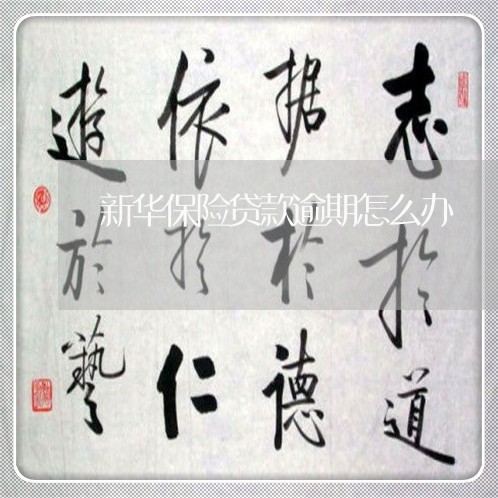 志於道
据於德
依於仁
遊於藝
新华保险贷款逾期怎么办